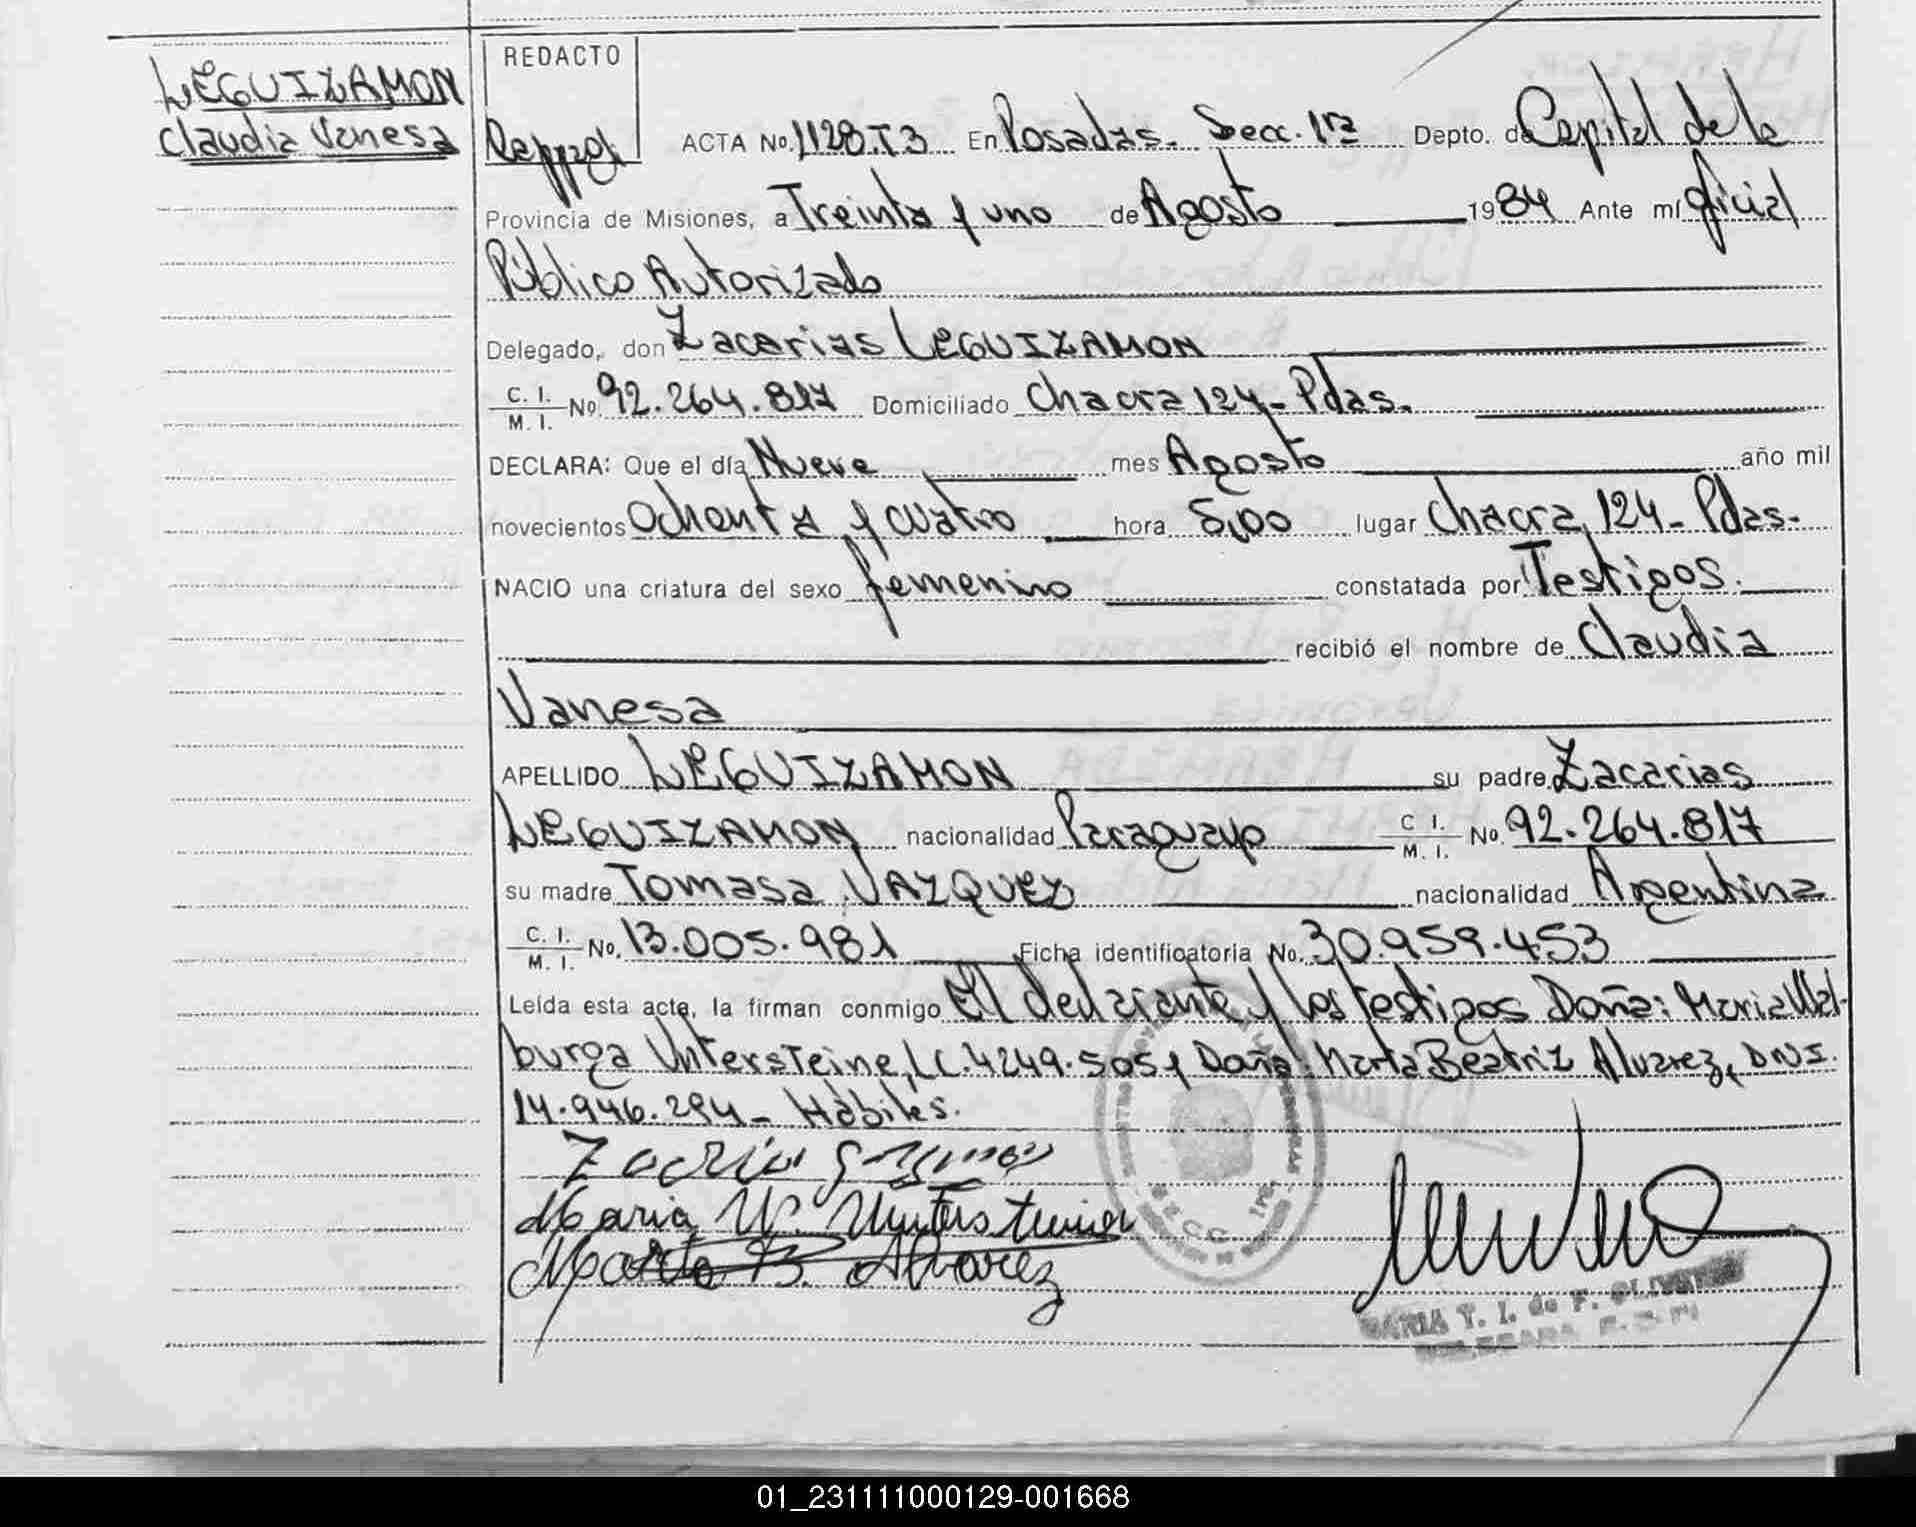 LEGUIZAMON
Claudia Vanesa
REDACTO
ACTA No. 1128.T3 En Posadas. Secc. 1ra Depto. de Capital de la
Provincia de Misiones, a Treinta y uno de Agosto 1984 Ante mí Oficial
Público Autorizado
Delegado, don Zacarias LEGUIZAMON
C. I. / M. I. No. 92.264.817 Domiciliado Chacra 124 - Pdas.
DECLARA: Que el día Nueve mes Agosto año mil
novecientos Ochenta y cuatro hora 5,00 lugar Chacra 124 - Pdas.
NACIO una criatura del sexo femenino constatada por Testigos.
recibió el nombre de Claudia
Vanesa
APELLIDO LEGUIZAMON su padre Zacarias
LEGUIZAMON nacionalidad Paraguayo C. I. / M. I. No. 92.264.817
su madre Tomasa VAZQUEZ nacionalidad Argentina
C. I. / M. I. No. 13.005.981 Ficha identificatoria No. 30.959.453
Leída esta acta, la firman conmigo El declarante y los testigos Doña: Maria Wal-
burga Untersteine, LC. 4249.505 y Doña: Marta Beatriz Alvarez, DNI.
14.946.294 - Hábiles.
Maria W.
Marta B. Alvarez
MARIA T. I. de F.
01_231111000129-001668